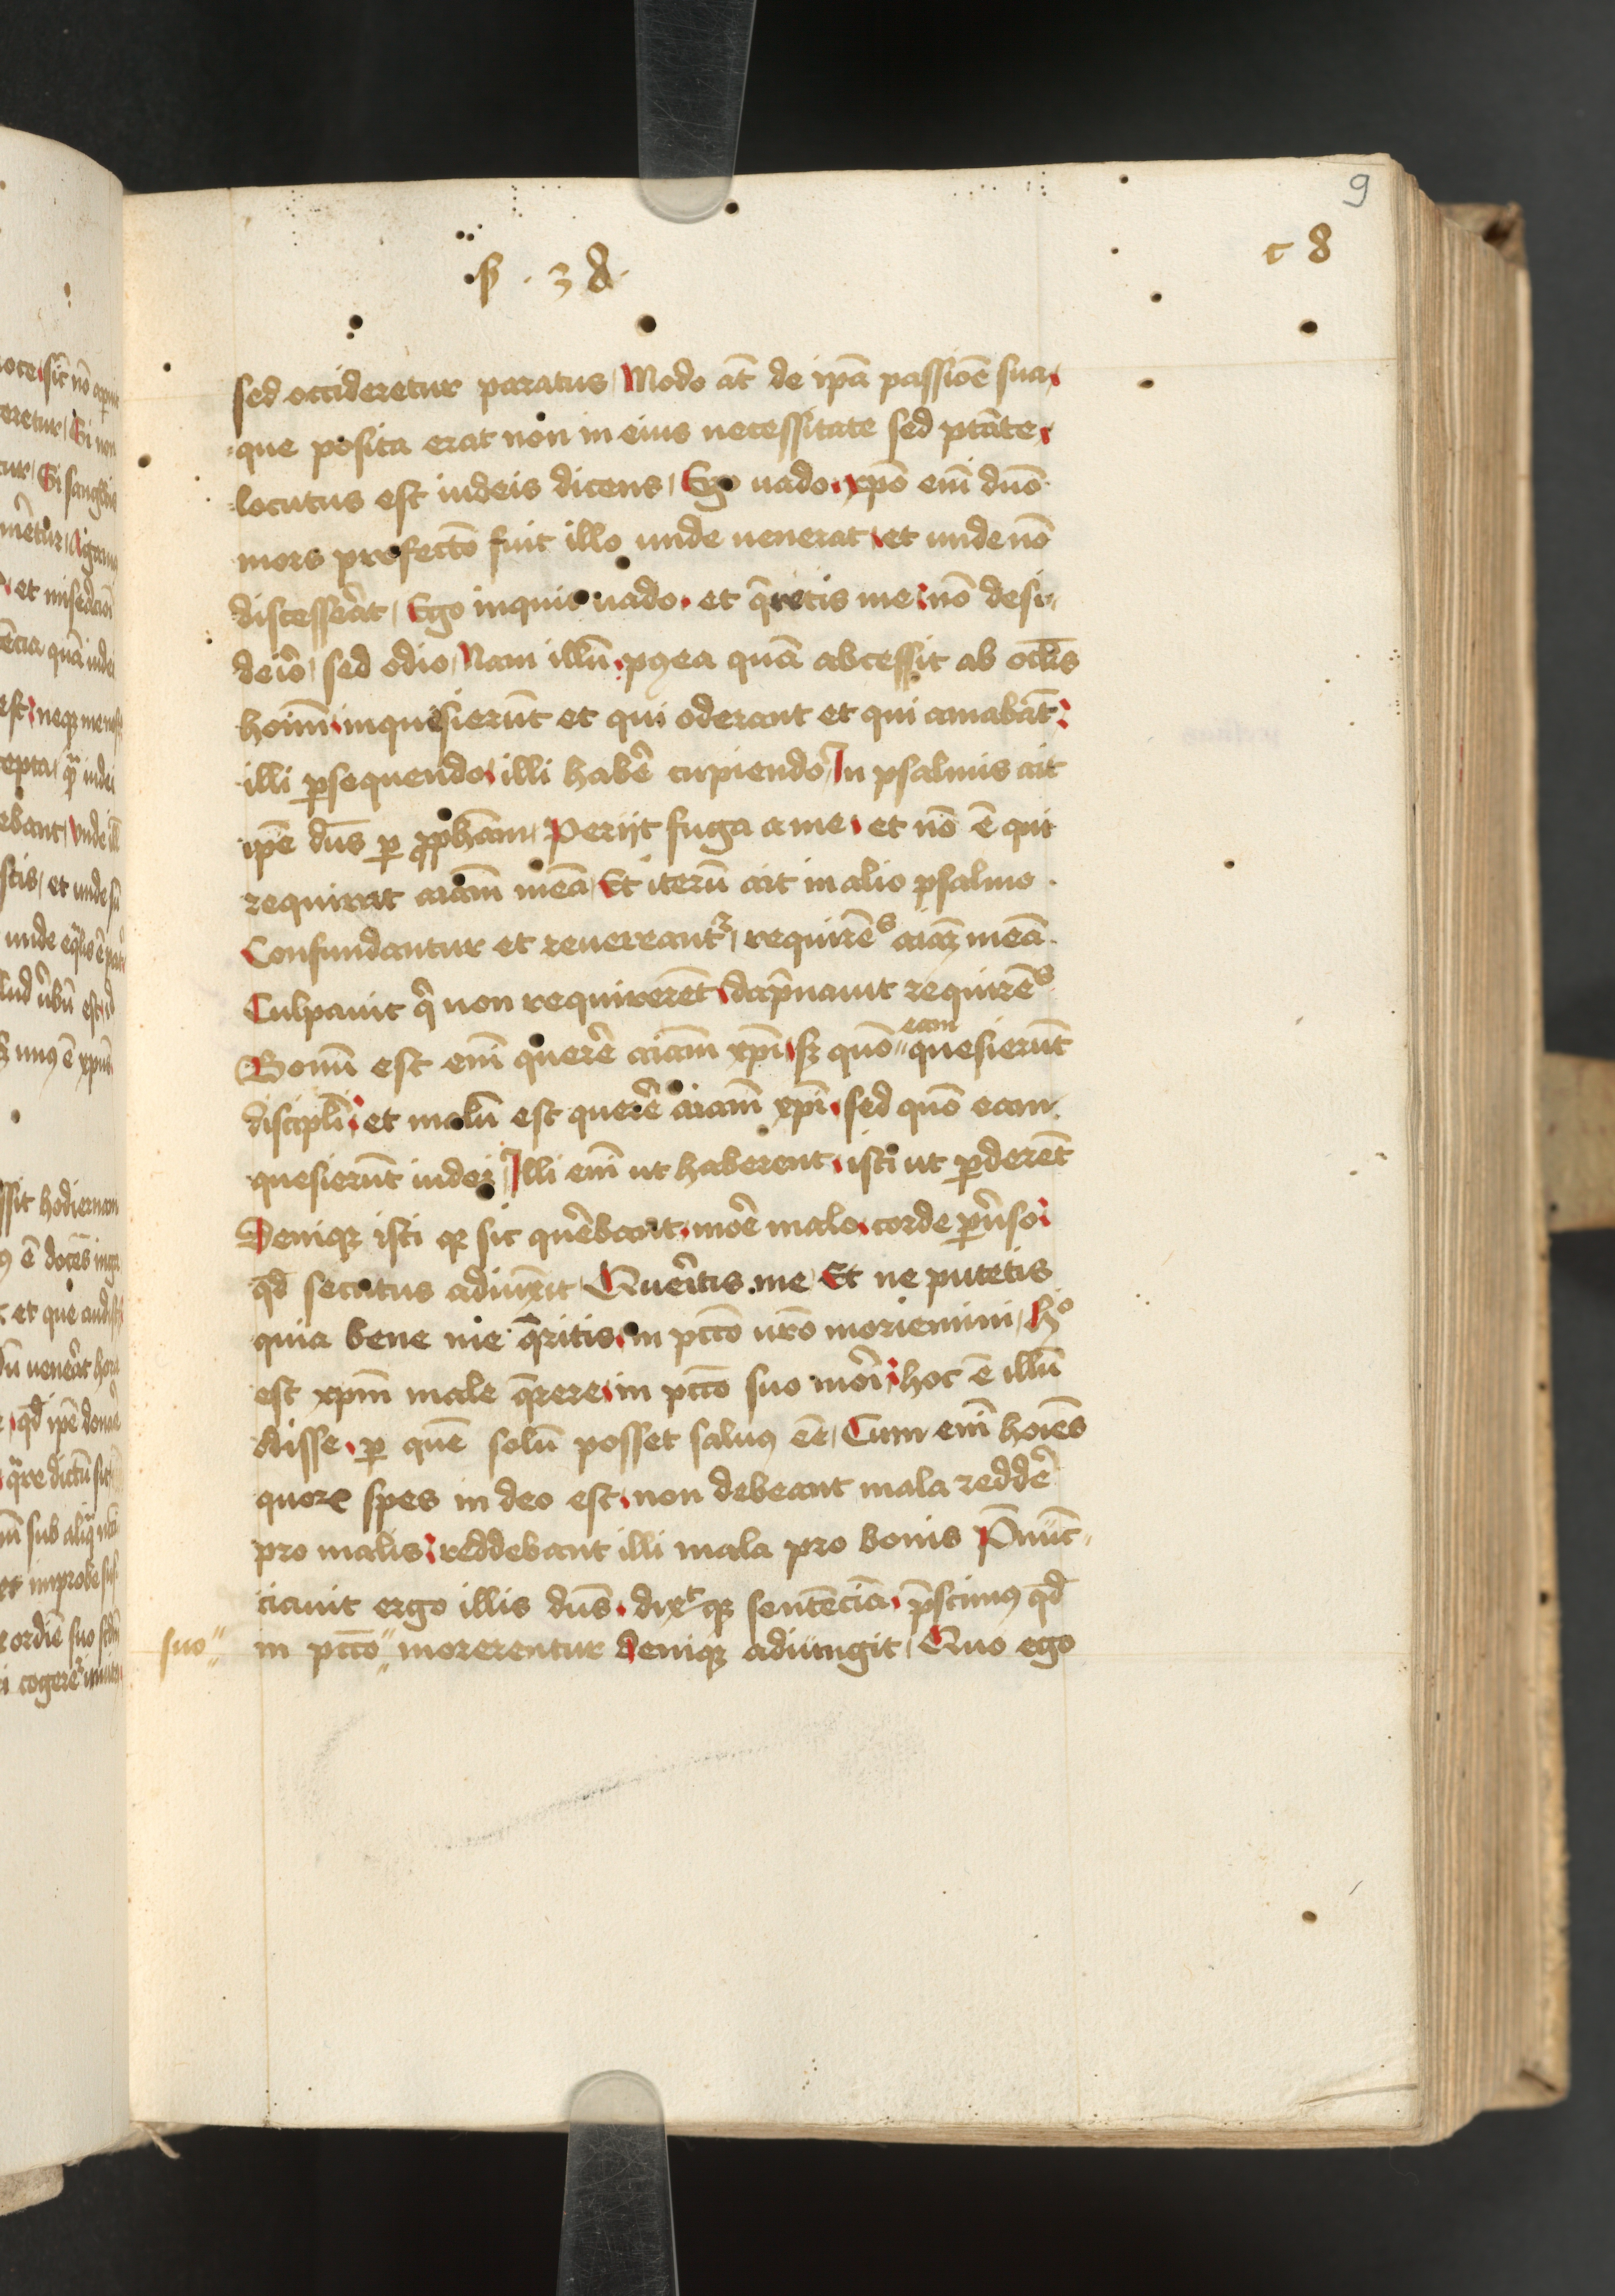 9
c 8
s̄ . 3 a.
sed occideretur paratus Modo at̄ de ip̄a passiōe sua
que posita erat non in eius necessitate sed ptāte
locutus est iudeis dicens Ego uado xp̄o em̄ dn̄o
mors profecto fuit illo unde uenerat et unde nō
discesserāt Ego inquit uado et q̄ritis me nō desi-
deiō sed odio Nam illū pꝯea quā abcessit ab oclīs
hoīm inquisierūt et qui oderant et qui amabāt
illi ꝑsequendo illi habē cupiendo In psalmis ait
ip̄e dn̄s ꝑ ꝓph̄am Perijt fuga a me et nō ē qui
requirat aīam meā Et iterū ait in alio psalmo
Confundantur et reuereantʳ requirēs aīaꝫ meā
Culpauit q̄ non requirerēt dāpnauit requirēs
Bonū est em̄ querē aīam xp̄i sꝫ quō eam quesierūt
discipl̄i et malū est querē aīam xp̄i sed quō eam
quesierūt iudei Illi em̄ ut haberent isti ut ꝑderēt
Deniqꝫ isti qꝫ sic quērebant moē malo corde ꝑu̾so
qd̄ secutus adiunxit Queritis me Et ne putetis
quia bene me q̄ritis in pcc̄o ur̄o moriemini hᵒ
est xp̄m male q̄rere in pcc̄o suo morī hoc ē illū
odisse ꝑ quē solū posset saluꝯ eē Cum em̄ hoīes
quoꝝ spes in deo est non debeant mala reddē
pro malis reddebant illi mala pro bonis P̄nūc-
ciauit ergo illis dn̄s dixᵗqꝫ sentēciā p̄scimꝯ qd̄
suo in pcc̄o morerentur deniqꝫ adiungit Quo ego